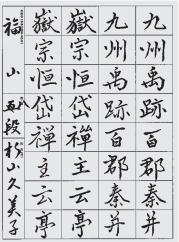 九州禹跡百郡秦并
九州禹跡百郡秦并
嶽宗恒岱禪主云亭
嶽宗恒岱禪主云亭
福山 五段 小久美子